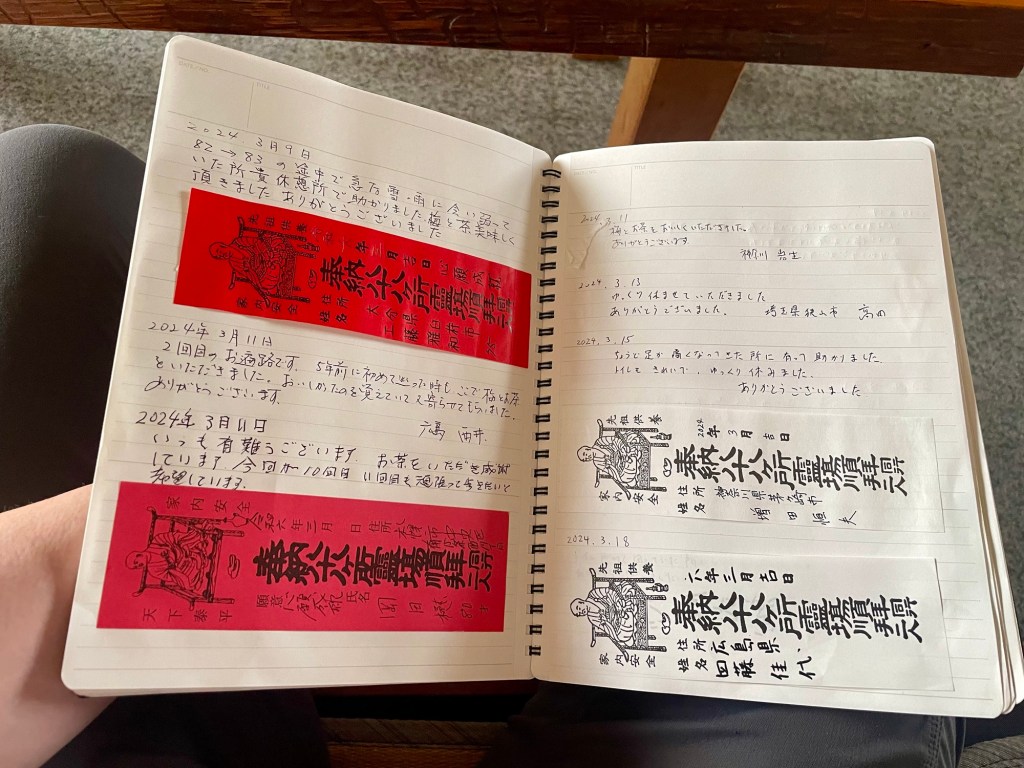 2024 3月9日
82→83 の途中で急な雪・雨に会い困って
いた所貴休憩所で助かりました 梅と茶美味しく
頂きました ありがとうございました
先祖供養
年 月吉日 心願成就
奉納八十八ヶ所霊場順拝同行二人
家内安全
住所 大分県臼杵市
姓名 工藤 雅和
2024年3月11日
2回目のお遍路です。5年前に初めて 時も、ここで梅とお茶
をいただきました。おいしかったのを覚えていて 寄らせてもらいました。
ありがとうございます。
広島 西井
2024年3月11日
いつも有難うございます お茶をいただき感謝
しています 今回が10回目 11回目も頑張って歩きたいと
希望しています
家内安全
令和六年三月 日 住所
奉納八十八ヶ所霊場順拝同行二人
願意 心願 氏名 岡田
天下泰平
2024. 3. 11
梅とお茶をおいしくいただきました。
ありがとうございます
神奈川 岩
2024. 3. 13
ゆっくり休ませていただきました
ありがとうございました。 埼玉県狭山市 高田
2024. 3. 15
ちょうど足が痛くなってきた所に有って助かりました。
トイレもきれいで、ゆっくり休みました。
ありがとうございました
先祖供養
2024年3月吉日
奉納八十八ヶ所霊場順拝同行二人
家内安全
住所 神奈川県茅ヶ崎市
姓名 増田恒夫
2024. 3. 18
先祖供養
六年三月吉日
奉納八十八ヶ所霊場順拝同行二人
家内安全
住所 広島県
姓名 藤佳代